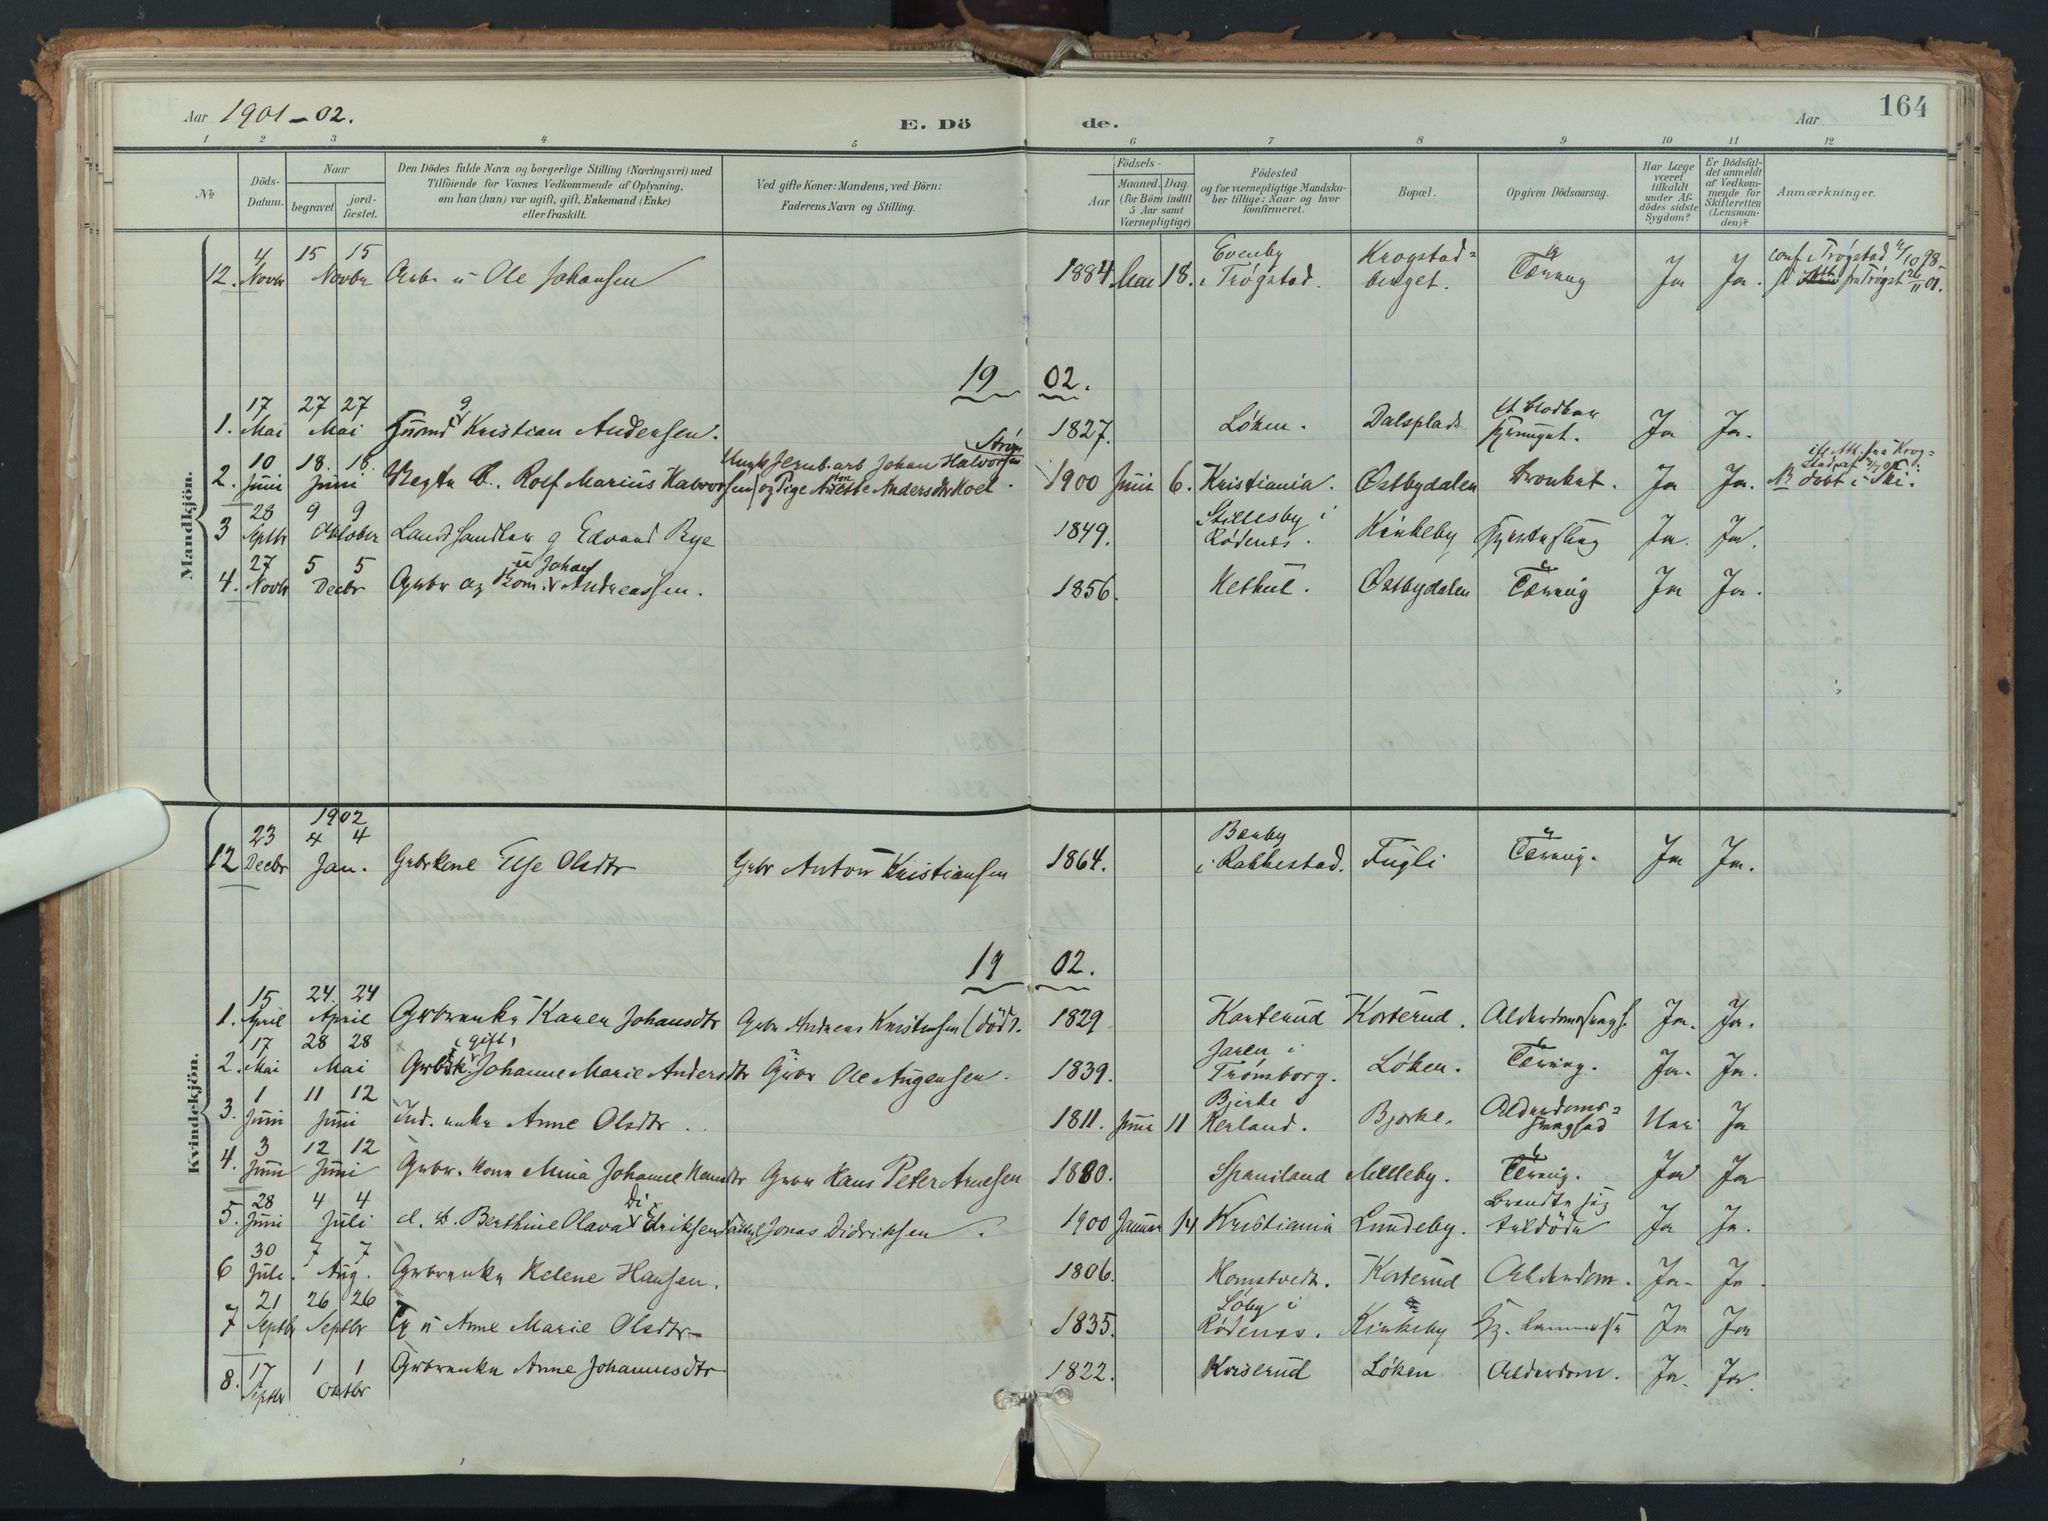 Aar 1901-02.
E. Dö de.
Aar
164
1 2 3 4 5 6 7 8 9 10 11 12
No
Döds-Datum.
Naar
begravet
jord-fæstet.
Den Dödes fulde Navn og borgerlige Stilling (Næringsvei) med
Tilföiende for Voxnes Vedkommende af Oplysning,
om han (hun) var ugift, gift, Enkemand (Enke)
eller fraskilt.
Ved gifte Koner: Mandens, ved Börn:
Faderens Navn og Stilling.
Födsels-
Aar
Maaned. Dag.
(for Börn indtil
5 Aar samt
Værnepligtige)
Födested
og for værnepligtige Mandska-
ber tillige: Naar og hvor
konfirmeret.
Bopæl.
Opgiven Dödsaarsag.
Har Læge
været
tilkaldt
under Af-
dödes sidste
Sygdom?
Er Dödsfal-
det anmeldt
af Vedkom-
mende for
Skifteretten
(Lensman-
den)?
Anmærkninger.
Mandkjön.
4 15 15 Evenby Krogstad= conf. i Trøgstad 4/10 98
12. Novbr Novbr Arbr u Ole Johansen 1884 Mai 18. i Trøgstad. berget. Tæring Ja Ja. fra Trøgst 26/11 01.
1902.
17 27 27 g
1. Mai Mai Huusmd Kristian Andersen. 1827. Løken. Dalsplads Ja Ja.
10 18. 18. Ungk Jernb. arb Johan Halvorsen
2. Juni Juni Uægte B. Rolf Marius Halvorsen og Pige Anette Andersdtr Moel. 1900 Juni 6. Kristiania. Østbydalen Bronkit. Ja Ja. NB Døbt i Ski.
28 9 9 Stillesby i
3 Septbr Oktober Landhandler g Edvard Rye 1849. Rødenes. Kirkeby Hjerteslag Ja. Ja.
27 5 5 u Johan
4. Novbr Decbr Grbr og Kom. Andreassen. 1856. Østbydalen Tæring Ja Ja.
Kvindekjön.
1902
23 4 4 Bænby
12 Decbr Jan. Grbrkone Else Olsdtr Grbr Anton Kristiansen 1864. i Rakkestad. Fugli Tæring. Ja Ja.
1902.
15 24. 24
1. April April Grbrenke Karen Johansdtr Grbr Andreas Kristensen (død). 1829 Korterud Korterud. Ja. Ja.
17 28 28 gift Jaren i
2. Mai Mai Johanne Marie Andersdtr Grbr Ole Augensen. 1839. Trømborg. Løken. Tæring. Ja. Ja.
1 11 12 Bjerke i
3. Juni Juni Ind. enke Anne Olsdtr. 1811. Juni 11 Herland. Bjørke. Alderdoms= svaghed Nei Ja
3 12 12
4. Juni Juni Grbr. kone Mina Johanne Hansdtr Grbr Hans Peter Arnesen 1880. Spaniland Melleby. Tæring. Ja Ja
28 4 4 Di Brændte sig
5. Juni Juli d. B. Berthine Olava Didriksen Jonas Didriksen. 1900 Januar 14 Kristiania Lundeby. Ja Ja.
30 7 7
6 Juli. Aug. Grbrenke Helene Hansen. 1806. Homstvedt. Korterud Alderdom. Ja. Ja
21 26 26 Søby i
7 Septbr Septbr u Anne Marie Olsdtr 1835. Rødenes. Kirkeby Ja Ja
17 1 1
8. Septbr Oktbr Grbrenke Anne Johannesdtr 1822. Kviserud Løken Alderdom. Ja. Ja.